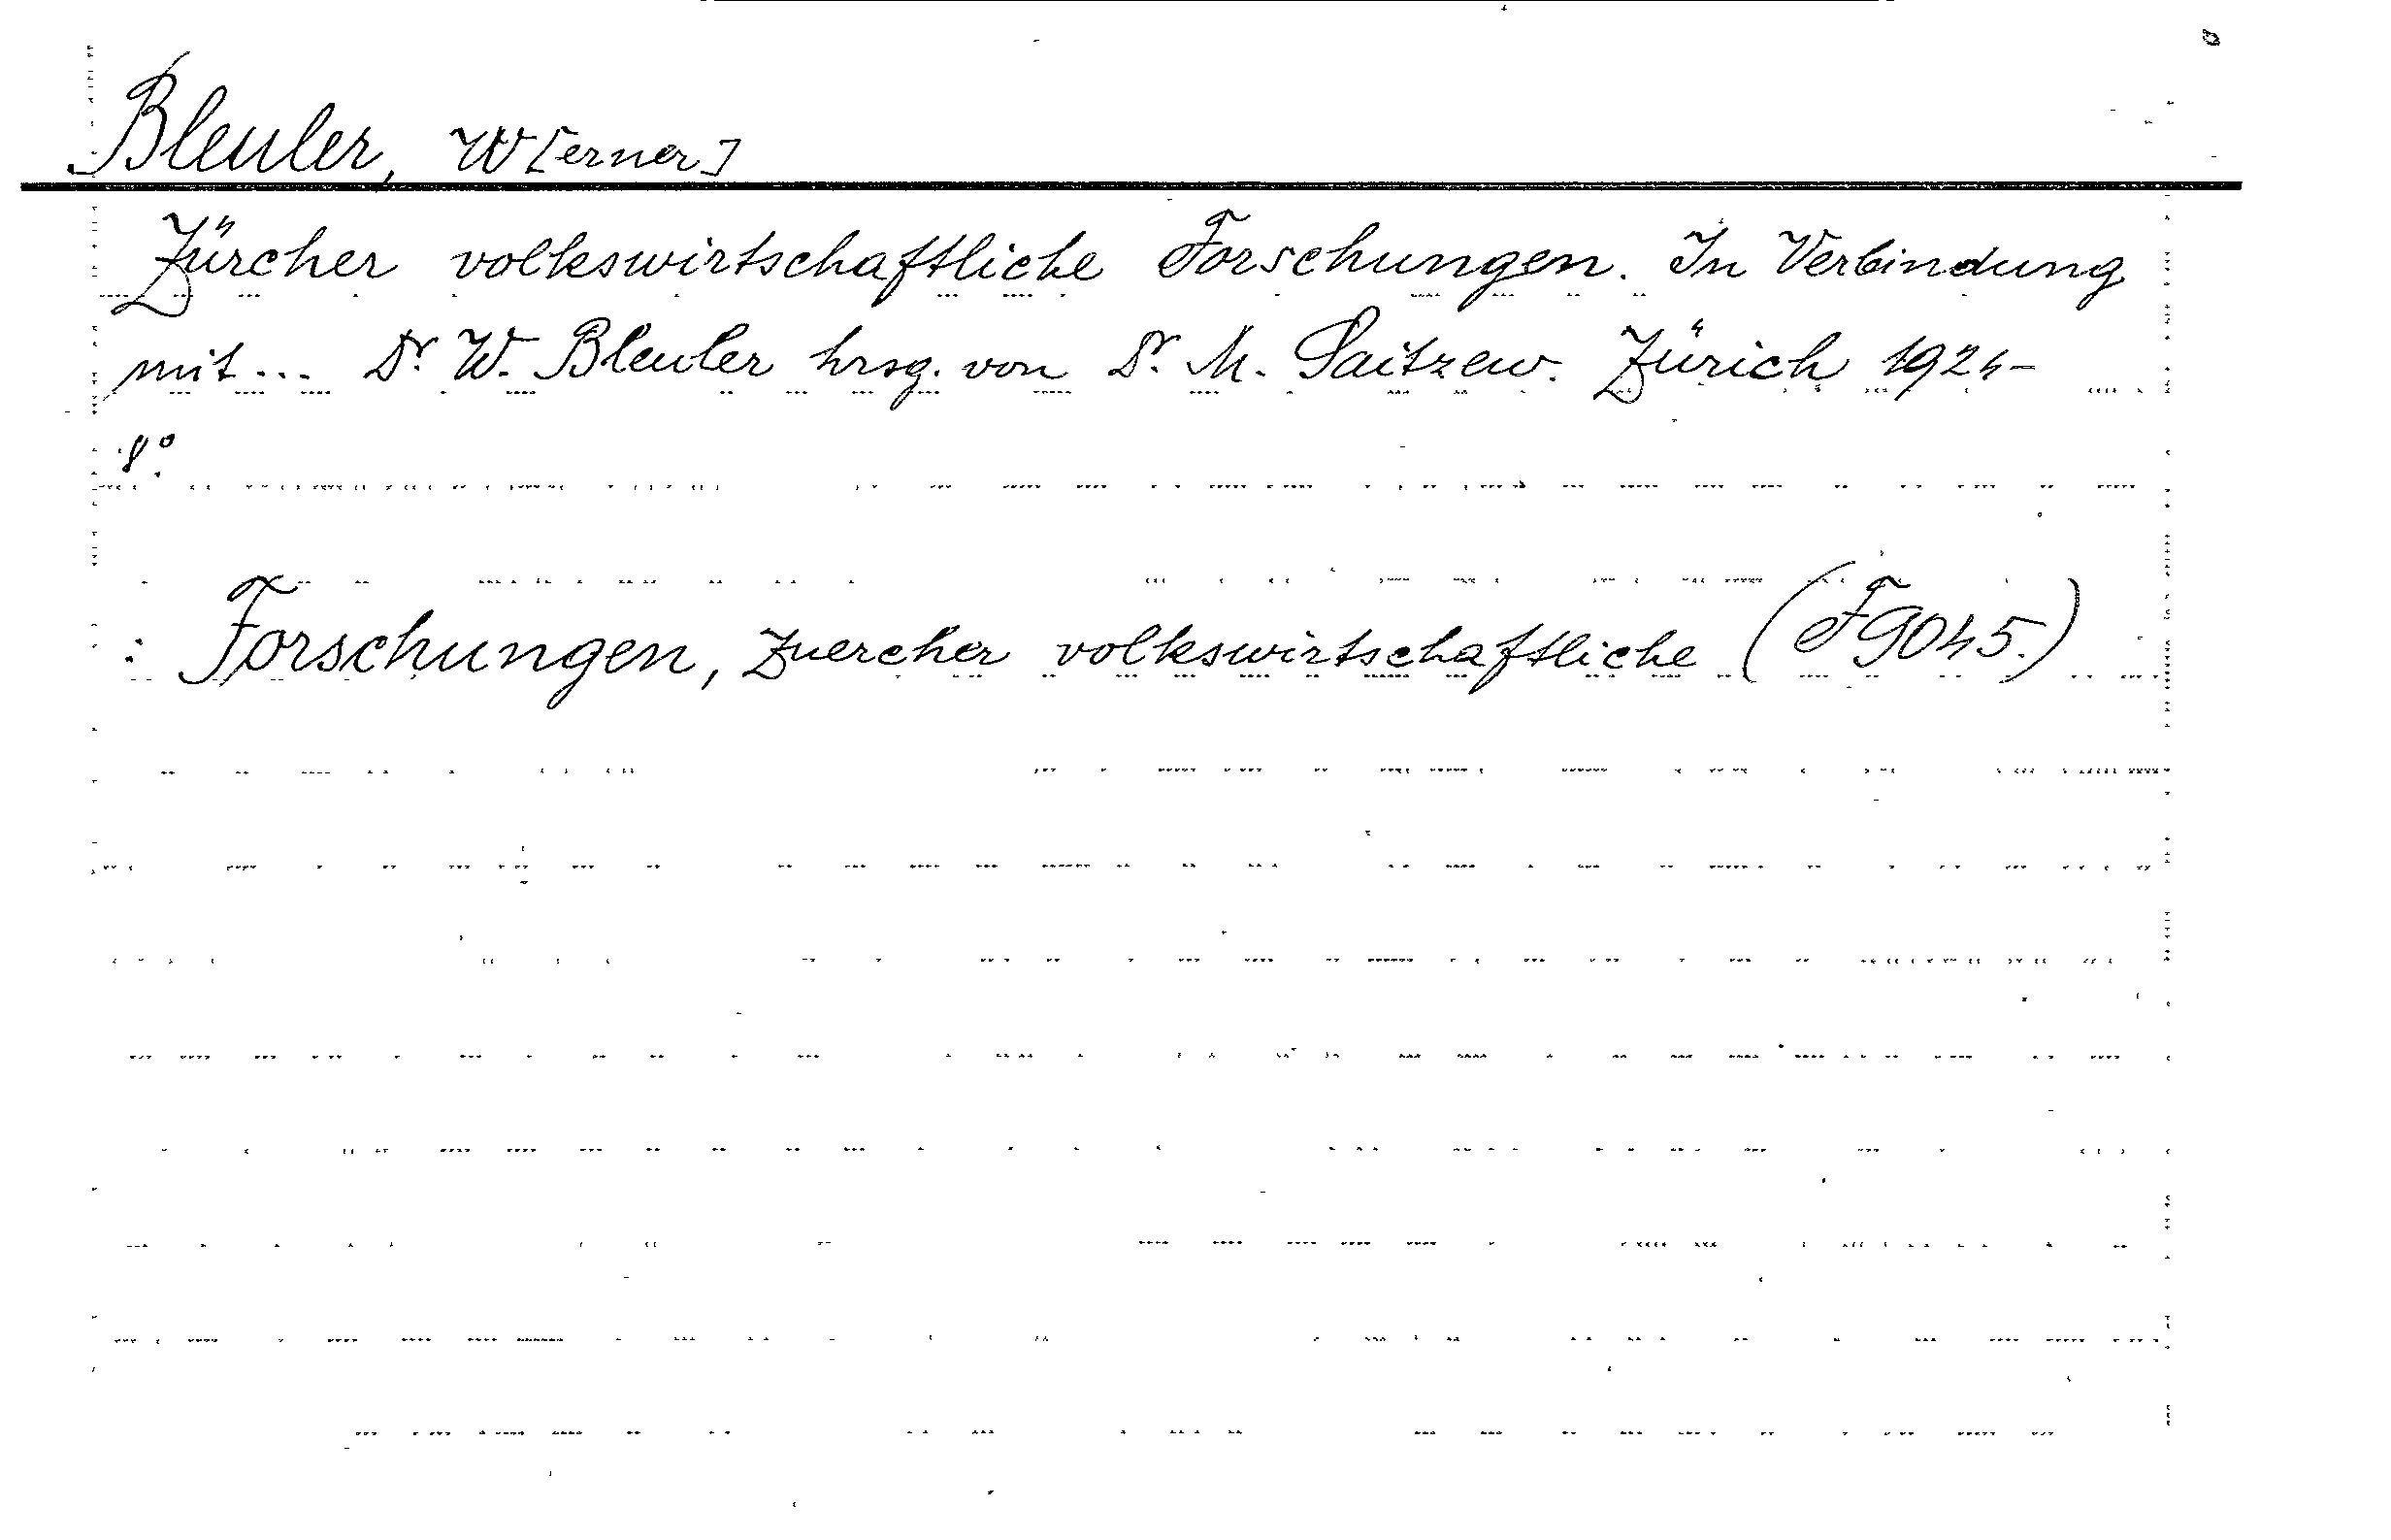 Bleuler, W[erner]
Zürcher volkswirtschaftliche Forschungen. In Verbindung
mit... Dr. W. Bleuler hrsg. von Dr. M. Saitzew. Zürich 1924-
8°.
: Forschungen, Zuercher volkswirtschaftliche (F 9045.)